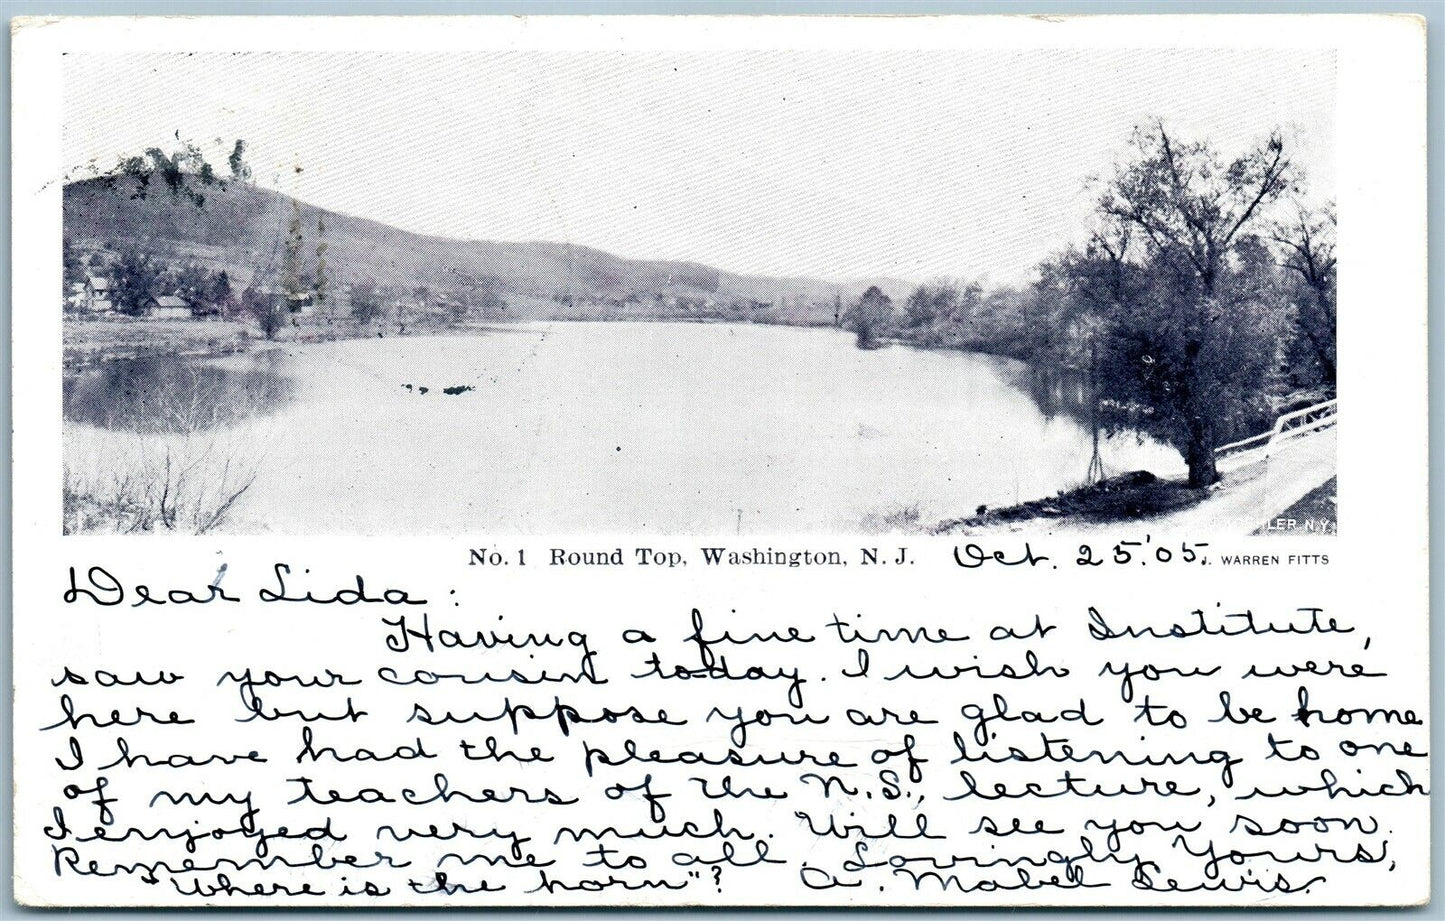 LER N.Y.
No. 1 Round Top, Washington, N. J. Oct. 25. '05. J. WARREN FITTS
Dear Lida:
Having a fine time at Institute,
saw your cousin today. I wish you were
here but suppose you are glad to be home
I have had the pleasure of listening to one
of my teachers of the N.S., lecture, which
I enjoyed very much. Will see you soon.
Remember me to all. Lovingly Yours,
"Where is the horn"? A. Mabel Lewis.